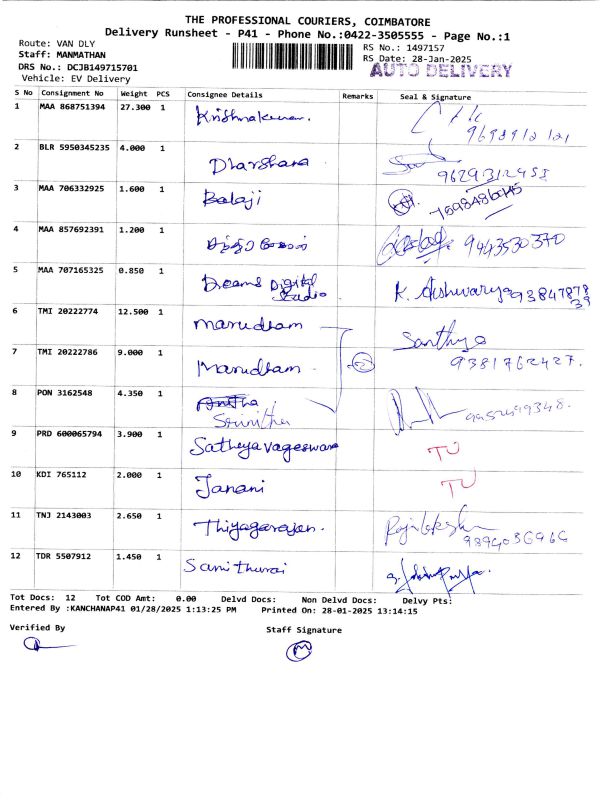 THE PROFESSIONAL COURIERS, COIMBATORE
Delivery Runsheet - P41 - Phone No.:0422-3505555 - Page No.:1
Route: VAN DLY
Staff: MANMATHAN
DRS No.: DCJB149715701
Vehicle: EV Delivery
RS No.: 1497157
RS Date: 28-Jan-2025
AUTO DELIVERY
S No Consignment No Weight PCS Consignee Details Remarks Seal & Signature
1 MAA 868751394 27.300 1 Krishnakumar.
2 BLR 5950345235 4.000 1 Dharshana
3 MAA 706332925 1.600 1 Balaji
4 MAA 857692391 1.200 1 9443530370
5 MAA 707165325 0.850 1 Dreams Digital Studio K. Aishwarya
6 TMI 20222774 12.500 1 Marudham Santhya
7 TMI 20222786 9.000 1 Marudham 2 9381762427.
8 PON 3162548 4.350 1
9 PRD 600065794 3.900 1 TU
10 KDI 765112 2.000 1 Janani TU
11 TNJ 2143003 2.650 1 Thiyagarajan.
12 TDR 5507912 1.450 1
Tot Docs: 12 Tot COD Amt: 0.00 Delvd Docs: Non Delvd Docs: Delvy Pts:
Entered By :KANCHANAP41 01/28/2025 1:13:25 PM Printed On: 28-01-2025 13:14:15
Verified By
Staff Signature